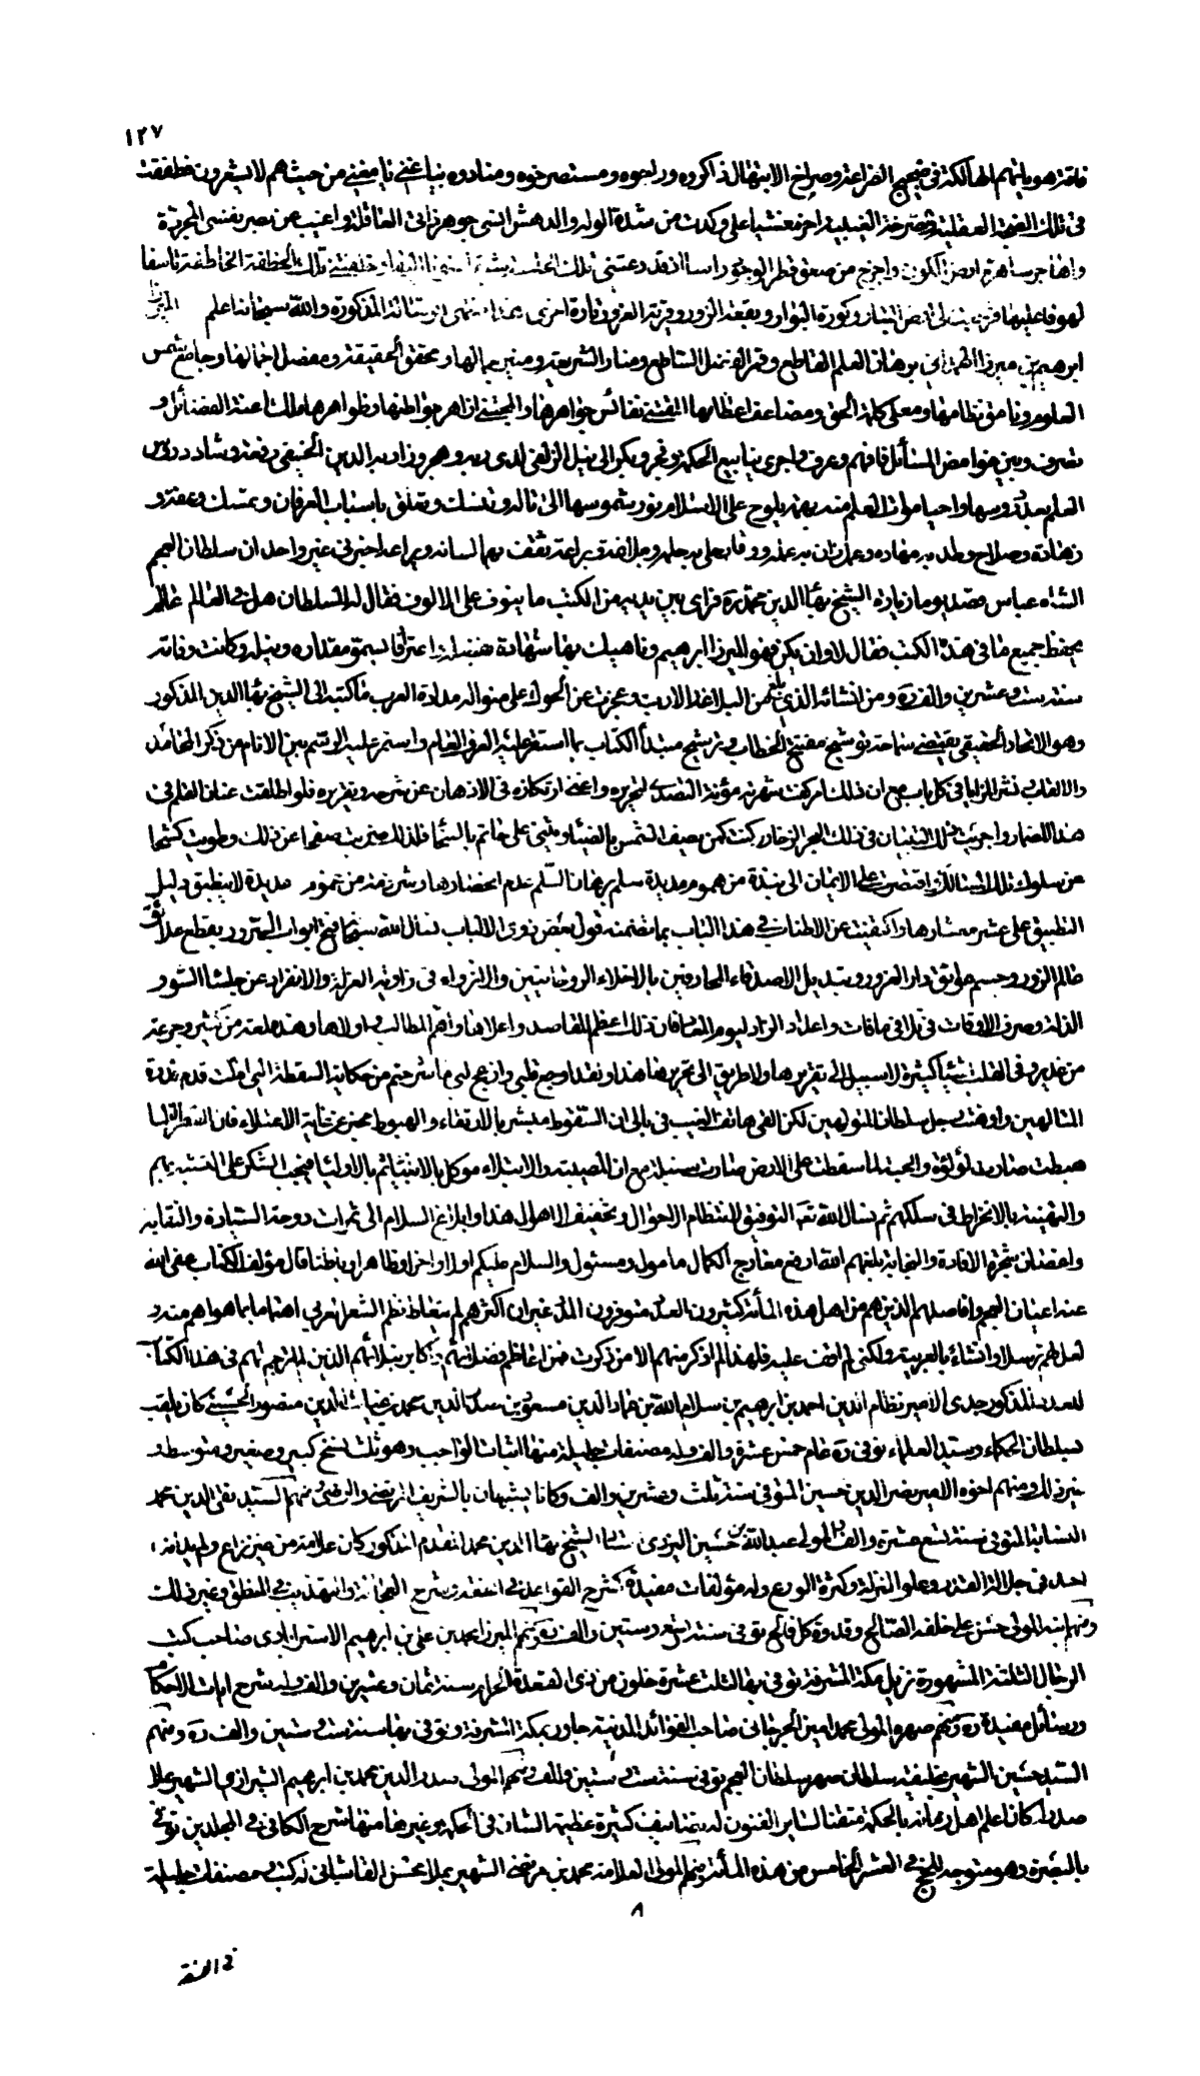 ١٢٧
فاقة هوياتهم الهالكة في ضجيج الضراعة وصراخ الابتهال ذاكروه وراجوه ومستصرخوه ومنادوه بياغني يا مغني من حيث هم لا يشعرون فطفقت
في تلك الضجة العقلية والصرخة الغيبية اخر مغشيا علي وكدت من شدة الوله والدهش انسى جوهر ذاتي العاقلة واغيب عن بصر نفسي المجردة
واهاجر ساهرة ارض الكون واخرج من صقع قطر الوجود راسا اذ قد ودعتني تلك الخلسة
لهوفا عليها الى ارض التبار وكورة البوار وبقعة الزور وقرية الغرور تارة اخرى المذكورة والله سبحانه اعلم الميرزا
ابرهيم بن ميرزا الهمداني برهان العلم القاطع وقمر الفضل الساطع ومنار الشريعة ومنير جمالها ومحقق الحقيقة ومفصل اجمالها وجامع شمس
العلوم وناسق نظامها ومعلي كلمة الحق ومضاعف اعظامها المقتني نفائس جواهرها والمجتني ازاهر بواطنها وظواهرها ملك اعنة الفضائل و
تصرف وبين غوامض المسائل فافهم وعرف واجرى ينابيع الحكمة وفجر وبكر الى نيل الزلفى لدى ربه وهجر وزاد به الدين الحنيفي رفعة وشاد دروس
العلم بعد دروسها واحيا موات العلم منه بهمة يلوح على الاسلام نور شموسها الى تاله وتنسك وتعلق باسباب العرفان وتمسك وعفة و
زهادة وصلاح وطد به مهاده وعمل زان به علمه ووقار حلى به حلمه وجلالة وبراعة تقف بهما لسانه ويراعه اخبرني غير واحد ان سلطان العجم
الشاه عباس قصد يوما زيارة الشيخ بهاء الدين محمد ره فراى بين يديه من الكتب ما ينوف على الالوف فقال له السلطان هل في العالم عالم
يحفظ جميع ما في هذه الكتب فقال لا وان يكن فهو الميرزا ابرهيم وناهيك بها شهادة بفضله واعترافا بسمو مقداره ونبله وكانت وفاته
سنة ست وعشرين والف ره ومن انشائه الذي بلغ من البلاغة الارب وعجزت عن الحوك على منواله مدادة العرب ما كتبه الى الشيخ بهاء الدين المذكور
وهو الاتحاد الحقيقي يقتضي سماحة توشيح مفتتح الخطاب وترشيح مبتدأ الكتاب بما استقر عليه العرف العام واستمر عليه الرسم بين الانام من ذكر المحامد
والالقاب ونشر المزايا في كل باب مع ان ذلك امر كفت شهرته مؤنة التصدي لتحريره واغنى ارتكازه في الاذهان عن شرحه وتقريره فلو اطلقت عنان القلم في
هذا المضمار واجريت فلك التبيان في ذلك البحر الزخار كنت كمن يصف الشمس بالضياء ويثني على حاتم بالسخاء فلذلك ضربت صفحا عن ذلك وطويت كشحا
عن سلوك تلك المسالك واقتصرت على الايماء الى نبذة من هموم مديدة سلم برهان السلم عدم انحصارها وشرذمة من غموم عديدة لا ينطبق دليل
التطبيق على عشر معشارها واكتفيت عن الاطناب في هذا الباب بما تضمنه قول بعض ذوي الالباب نسال الله سبحانه فتح ابواب السرور بقطع علائق
عالم الزور وحسم عوائق دار الغرور وتبديل الاصدقاء المجازيين بالاخلاء الروحانيين والانزواء في زاوية العزلة والانفراد عن جلساء السوء و
الذلة وصرف الاوقات في تلافي ما فات واعداد الزاد ليوم المعاد فان ذلك اعظم المقاصد واعلاها واهم المطالب واولاها وهذه لمعة من كثير وجرعة
من غدير وفي القلب شيئا كثيرة لا سبيل الى تقريرها ولا طريق الى تحريرها هذا ولقد اوجع قلبي وازعج لبي ما شرحتم من حكاية السقطة التي المت قدم قدوة
المتالهين واوهنت رجل سلطان المتولهين لكن القى هاتف الغيب في بالي ان السقوط مبشر بالارتقاء والهبوط مخبر عن غاية الاعتلاء فان القطرة لما
هبطت صارت لؤلؤة والحبة لما سقطت على الارض صارت سنبلة مع ان المصيبة والابتلاء موكل بالانبياء ثم بالاولياء فيجب الشكر على التشبه بهم
والتهنئة بالانخراط في سلكهم ثم نسال الله تعه التوفيق لانتظام الاحوال وتخفيف الاهوال هذا وابلاغ السلام الى ثمرات دوحة السيادة والنقابة
واغصان شجرة الافادة والنجابة بلغهم الله ارفع معارج الكمال مامول ومسئول والسلام عليكم اولا واخرا وظاهرا وباطنا قال مؤلف الكتاب عفى الله
عنه اعيان العجم وافاضلهم الذين هم من اهل هذه المأة كثيرون العدد متوفرون المدد غير ان اكثرهم لم يتعاط نظم الشعر العربي اهتماما بما هو اهم منه و
لعل لهم ترسلا وانشاء بالعربية ولكني لم اقف عليه فلهذا لم اذكر منهم الا من ذكرت فمن اعاظم فضلائهم واكابر نبلائهم الذين لم اترجم لهم في هذا الكتاب
للعدد المذكور جدي الامير نظام الدين احمد بن ابرهيم بن سلام الله بن عماد الدين مسعود بن صدر الدين محمد بن غياث الدين منصور الحسيني كان يلقب
بسلطان الحكماء وسيد العلماء توفي ره عام خمس عشرة والف وله مصنفات جليلة منها اثبات الواجب وهو ثلث نسخ كبير وصغير ومتوسط و
غير ذلك ومنهم اخوه الامير نصير الدين حسين المتوفي سنة ثلث وعشرين والف وكانا يشبهان بالشريف المرتضى والرضي ومنهم السيد تقي الدين محمد
النسابة المتوفي سنة تسع عشرة والف المولى عبد الله بن حسين اليزدي الشيخ بهاء الدين محمد المقدم المذكور كان علامة من غير نزاع ولم يدافعه
احد في جلالة القدر وعلو المنزلة وكثرة الورع وله مؤلفات مفيدة كشرح القواعد في الفقه وشرح العجالة والتهذيب في المنطق وغير ذلك
ومنهم ابنه المولى حسن علي خلفه الصالح وقدوة كل فالح توفي سنة تسع وستين والف ره ومنهم الميرزا محمد بن علي بن ابرهيم الاسترابادي صاحب كتب
الرجال الثلثة المشهورة نزيل مكة المشرفة توفي بها لثلث عشرة خلون من ذي القعدة الحرام سنة ثمان وعشرين والف وله شرح ايات الاحكام
ورسائل مفيدة ره ومنهم صهره المولى محمد امين الجرجاني صاحب الفوائد المدنية جاور بمكة المشرفة وتوفي بها سنة ست وستين والف ره ومنهم
السيد حسين الشهير بخليفة سلطان صهر سلطان العجم توفي سنة ست وستين والف ومنهم المولى صدر الدين محمد بن ابرهيم الشيرازي الشهير بملا
صدرا كان اعلم اهل زمانه بالحكمة متقنا لسائر الفنون له تصانيف كثيرة عظيمة الشان في الحكمة وغيرها منها شرح الكافي في المجلدين توفي
بالبصرة وهو متوجه للحج في العشر الخامس من هذه المأة ومنهم المولى العلامة محمد بن مرتضى الشهير بملا محسن القاشاني له كتب مصنفات جليلة
٨
في الفقه